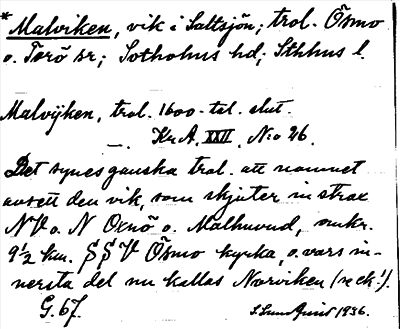 * Malviken, vik i Saltsjön; trol. Ösmo
o. Torö sr; Sotholms hd; Sthlms l.
Malvijken, trol. 1600-tal. slut.
—. Kr.A. XXII. N:o 26.
Det synes ganska trol. att namnet
avsett den vik, som skjuter in strax
NV o. N Oxnö o. Malhuvud, omkr.
9 1/2 km. SSV Ösmo kyrka, o. vars in-
nersta del nu kallas Norviken (eck!).
G. 67. 1936.